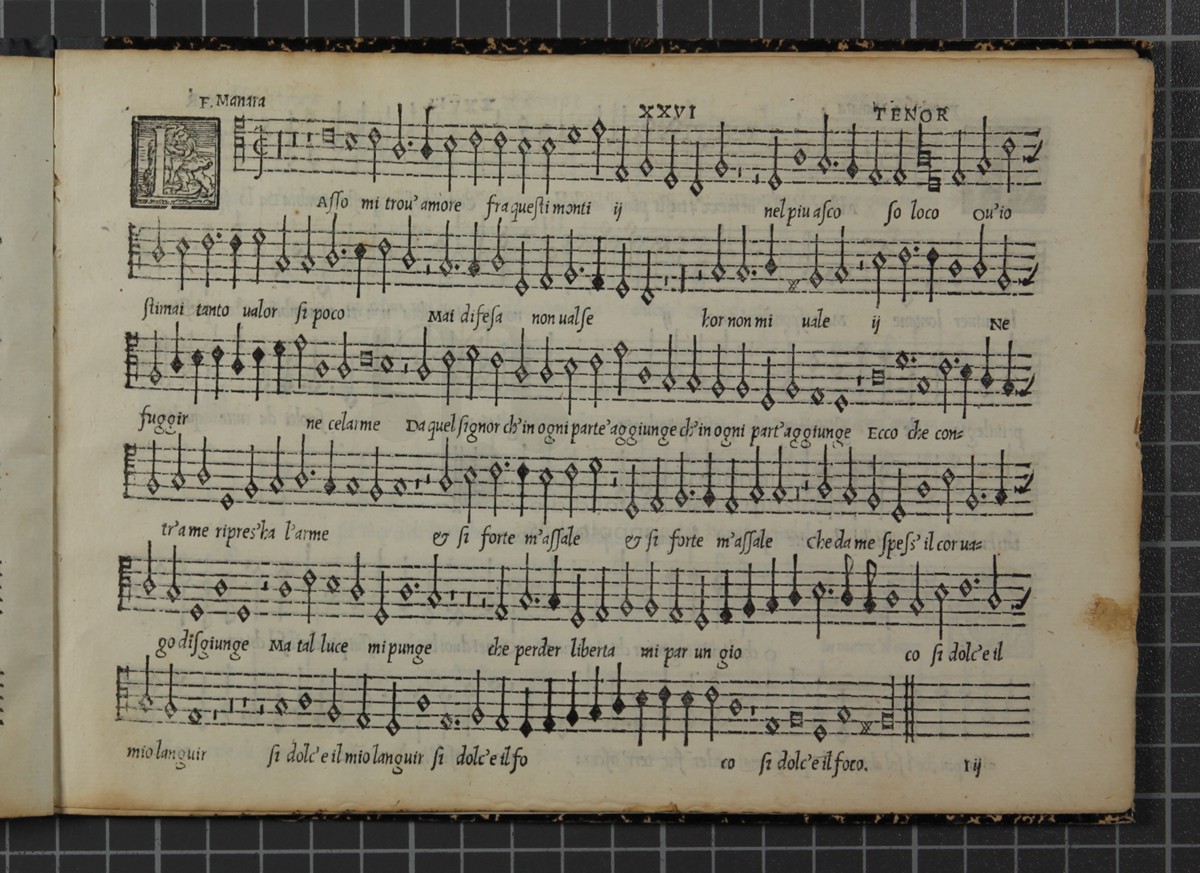 F. Manara XXVI TENOR
LAsso mi trou' amore fra questi monti ij nel piu asco so loco Ou'io
stimai tanto ualor si poco Mai difesa non ualse hor non mi uale ij Ne
fuggir ne celarme Da quel signor ch'in ogni parte' aggiunge ch'in ogni part' aggiunge Ecco che con=
tr'a me ripres'ha l'arme & si forte m'assale & si forte m'assale Che da me spess' il cor ua=
go disgiunge Ma tal luce mi punge che perder liberta mi par un gio co si dolc'e il
mio languir si dolc'e il mio languir si dolc'e il fo co si dolc'e il foco.
I ij